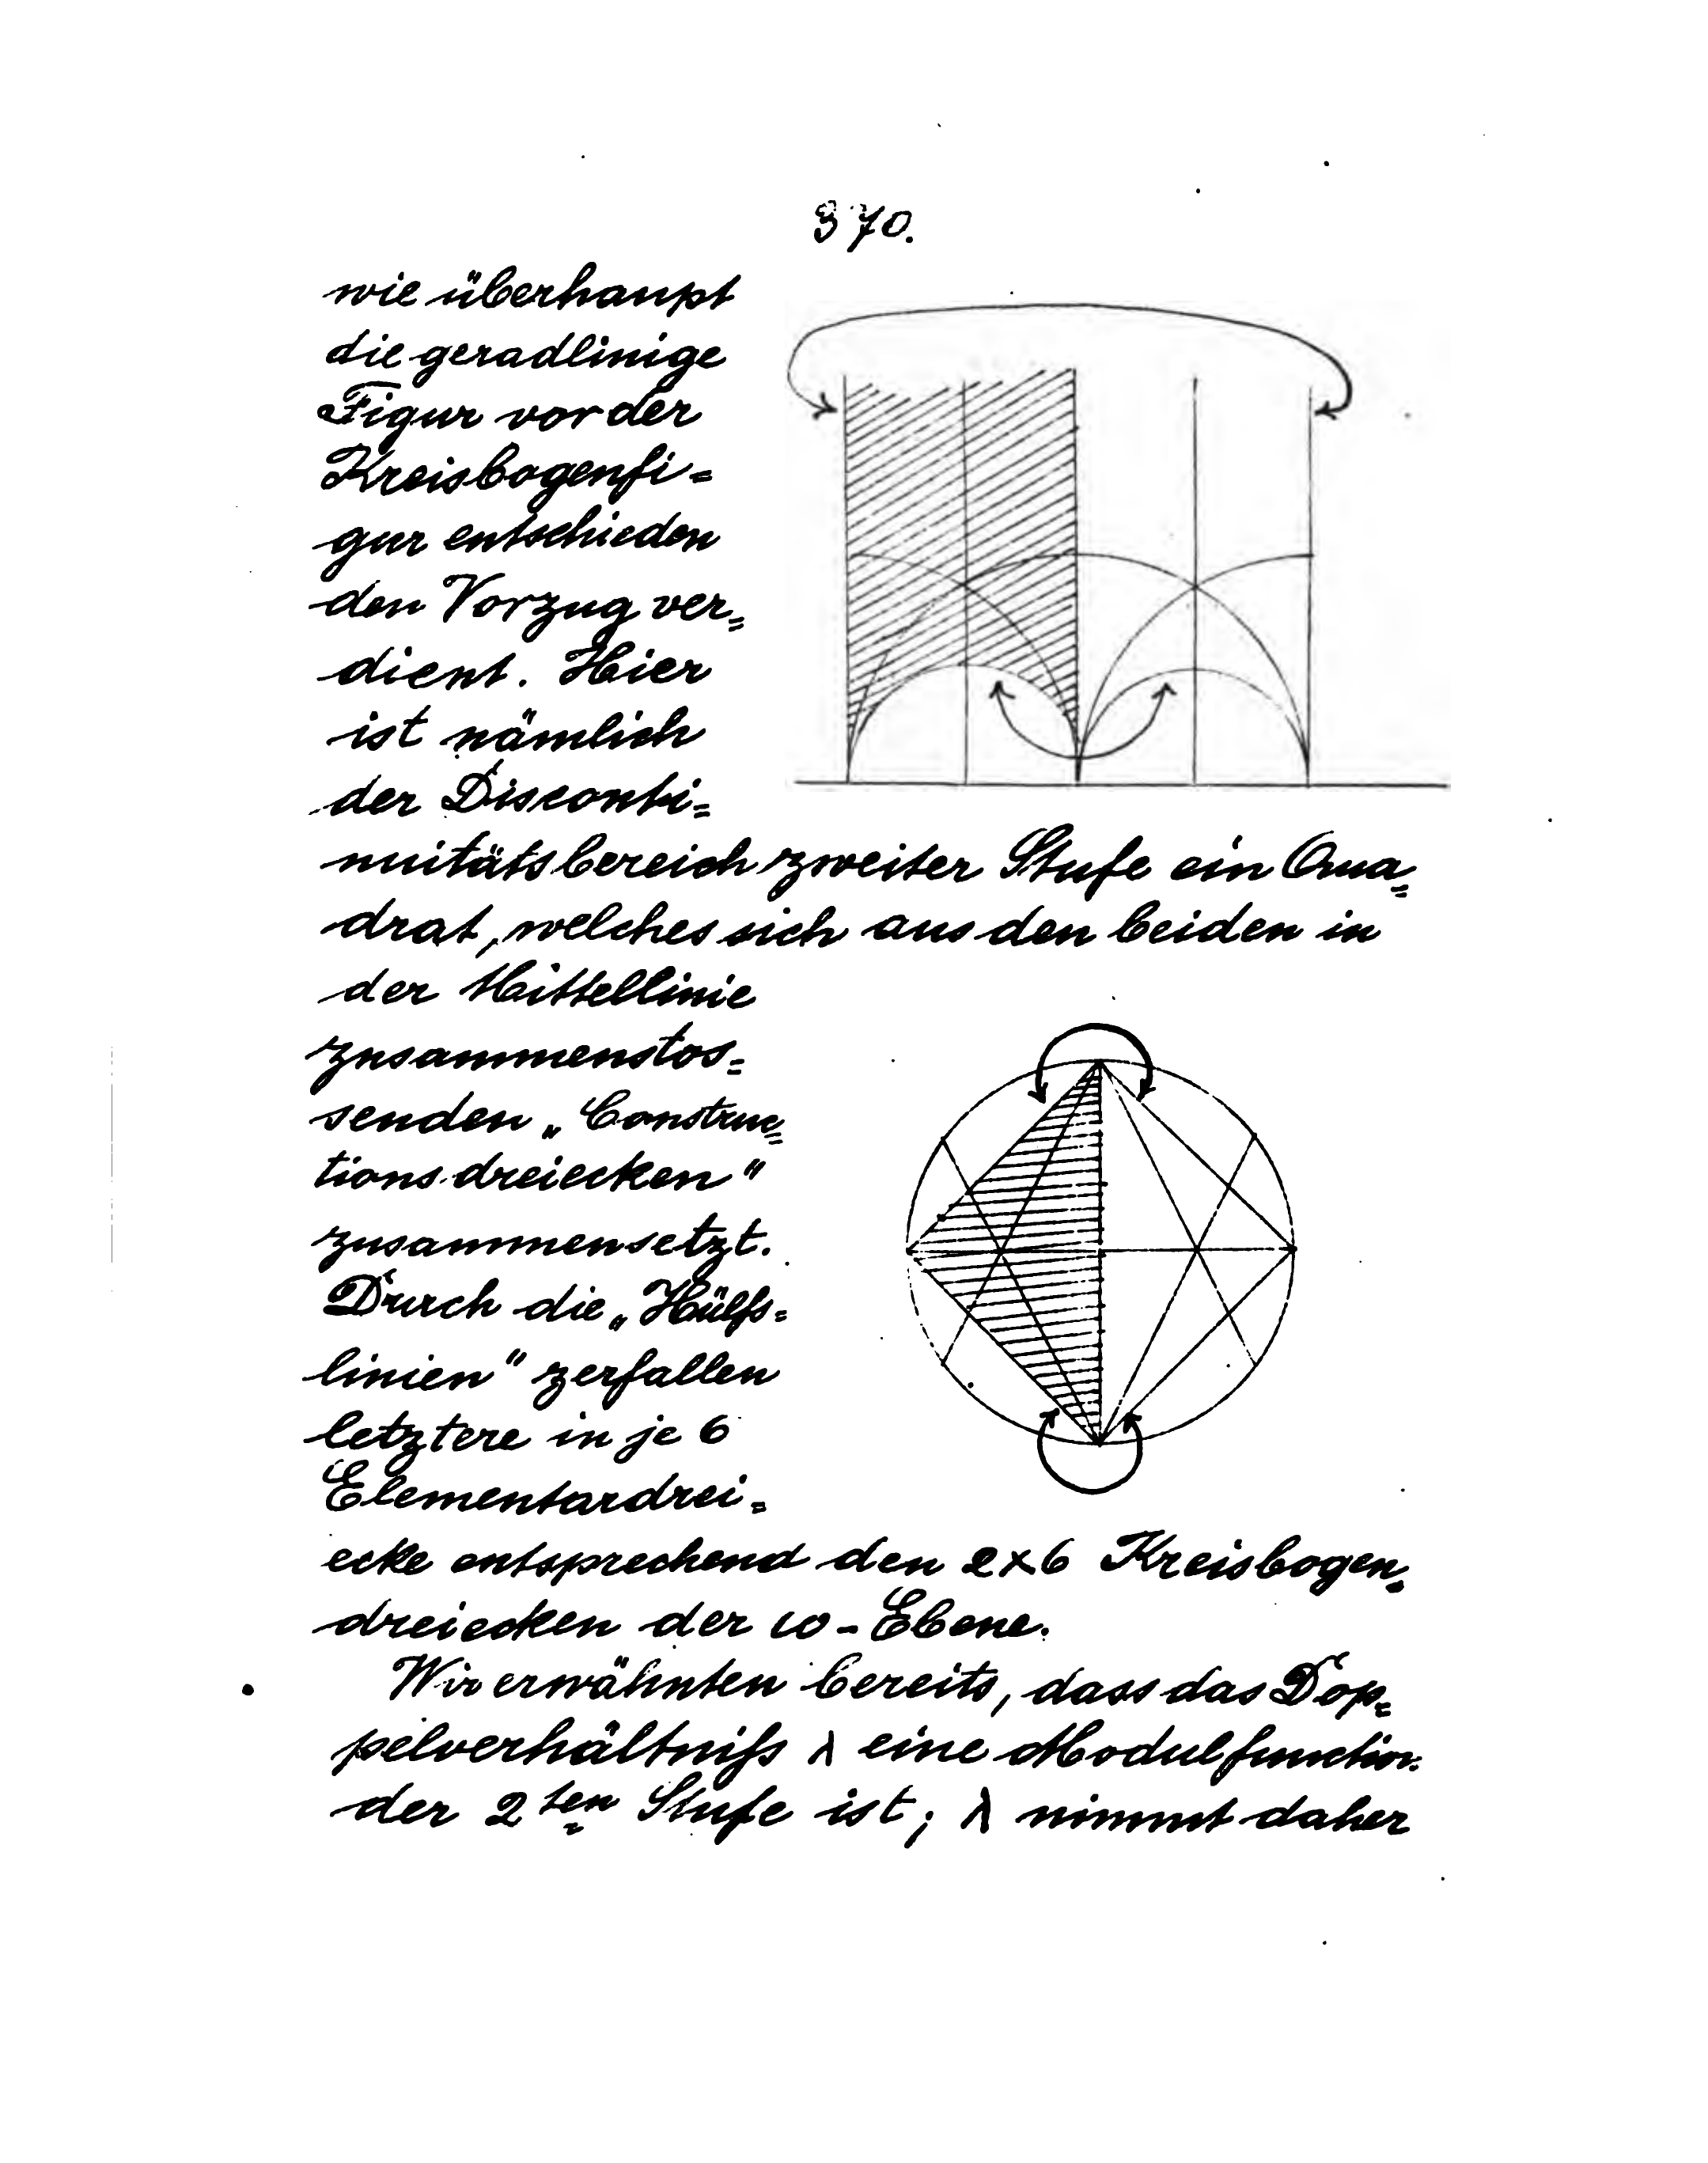 370.
wie überhaupt
die geradlinige
Figur vor der
Kreisbogenfi=
gur entschieden
den Vorzug ver=
dient. Hier
ist nämlich
der Disconti=
nuitätsbereich zweiter Stufe ein Qua=
drat, welches sich aus den beiden in
der Mittellinie
zusammenstos=
senden „Construc=
tionsdreiecken"
zusammensetzt.
Durch die „Hülfs=
linien" zerfallen
letztere in je 6
Elementardrei=
ecke entsprechend den 2×6 Kreisbogen=
dreiecken der ω-Ebene.
Wir erwähnten bereits, dass das Dop=
pelverhältniſs λ eine Modulfunction
der 2ten Stufe ist; λ nimmt daher